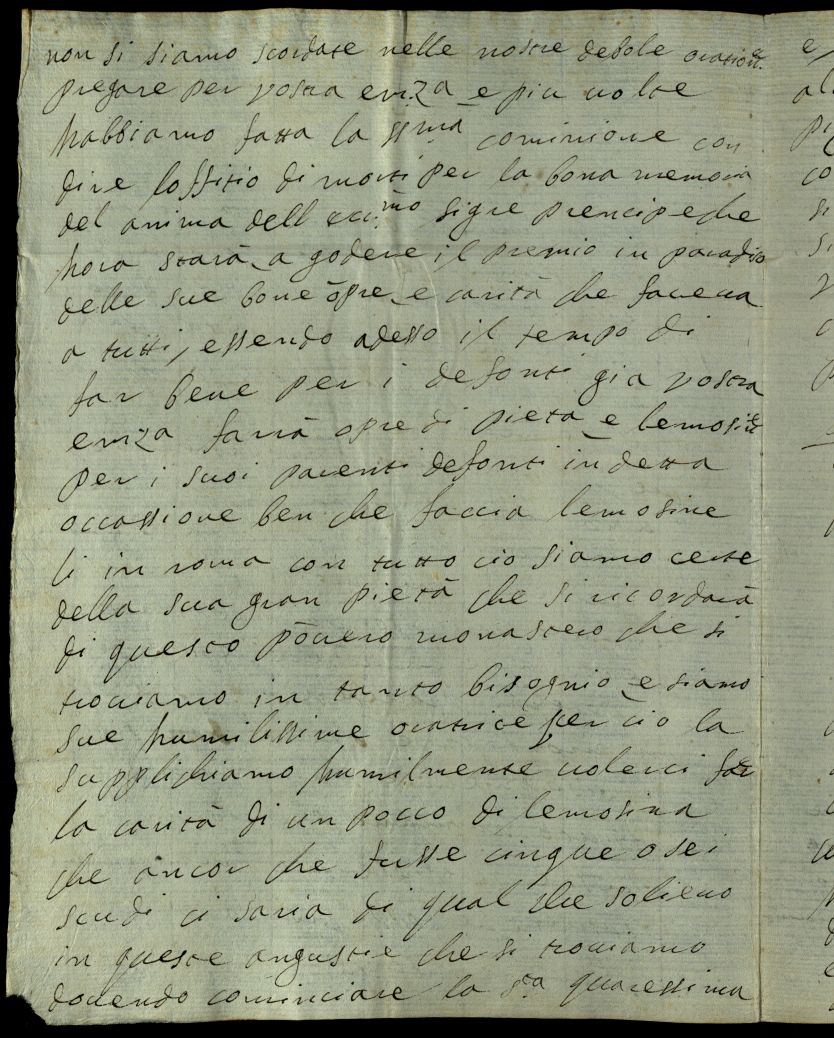 non si siamo scordate nelle nostre debole oration.
pregare per vostra emza e piu volte
habbiamo fatta la ssma cominione con
dire loffitio di morti per la bona memoria
del anima dell eccmo sigre prencipe che
hora starà a godere il premio in paradiso
delle sue bone opre e carità che faceva
a tutti, essendo adesso il tempo di
far bene per i defonti gia vostra
emza farrà opre di pieta e lemosine
per i suoi parenti defonti in detta
occassione ben che faccia lemosine
li in roma con tutto cio siamo certe
della sua gran pietà che si ricordarà
di questo povero monastero che si
trovamo in tanto bisognio e siamo
sue humilissime oratrice per cio la
supplichiamo humilmente volerci far
la carità di un pocco di lemosina
che ancor che fusse cinque o sei
scudi ci saria di qual che solievo
in queste angustie che si trovamo
dovendo cominciare la sta quaressima